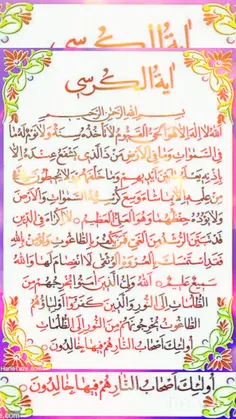 اية الكرسي
اية الكرسي
بسم الله الرحمن الرحيم
الله لا اله الا هو الحي القيوم لا تأخذه سنة ولا نوم له ما
في السموات وما في الارض من ذا الذي يشفع عنده الا
باذنه يعلم ما بين ايديهم وما خلفهم ولا يحيطون بشيء
من علمه الا بما شاء وسع كرسيه السموات والارض
ولا يؤده حفظهما وهو العلي العظيم لا اكراه في الدين
قد تبين الرشد من الغي فمن يكفر بالطاغوت ويؤمن بالله
فقد استمسك بالعروة الوثقى لا انفصام لها والله
سميع عليم الله ولي الذين آمنوا يخرجهم من
الظلمات الى النور والذين كفروا اولياؤهم
الطاغوت يخرجونهم من النور الى الظلمات
اولئك اصحاب النار هم فيها خالدون
اولئك اصحاب النار هم فيها خالدون